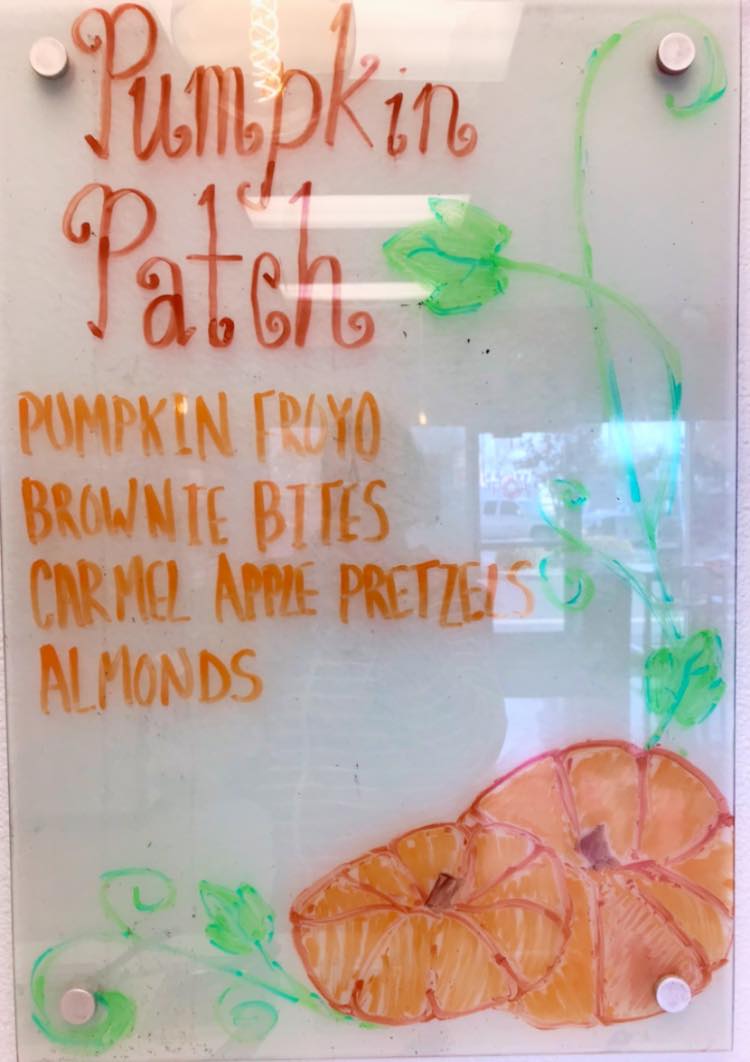 Pumpkin
Patch
PUMPKIN FROYO
BROWNIE BITES
CARMEL APPLE PRETZELS
ALMONDS